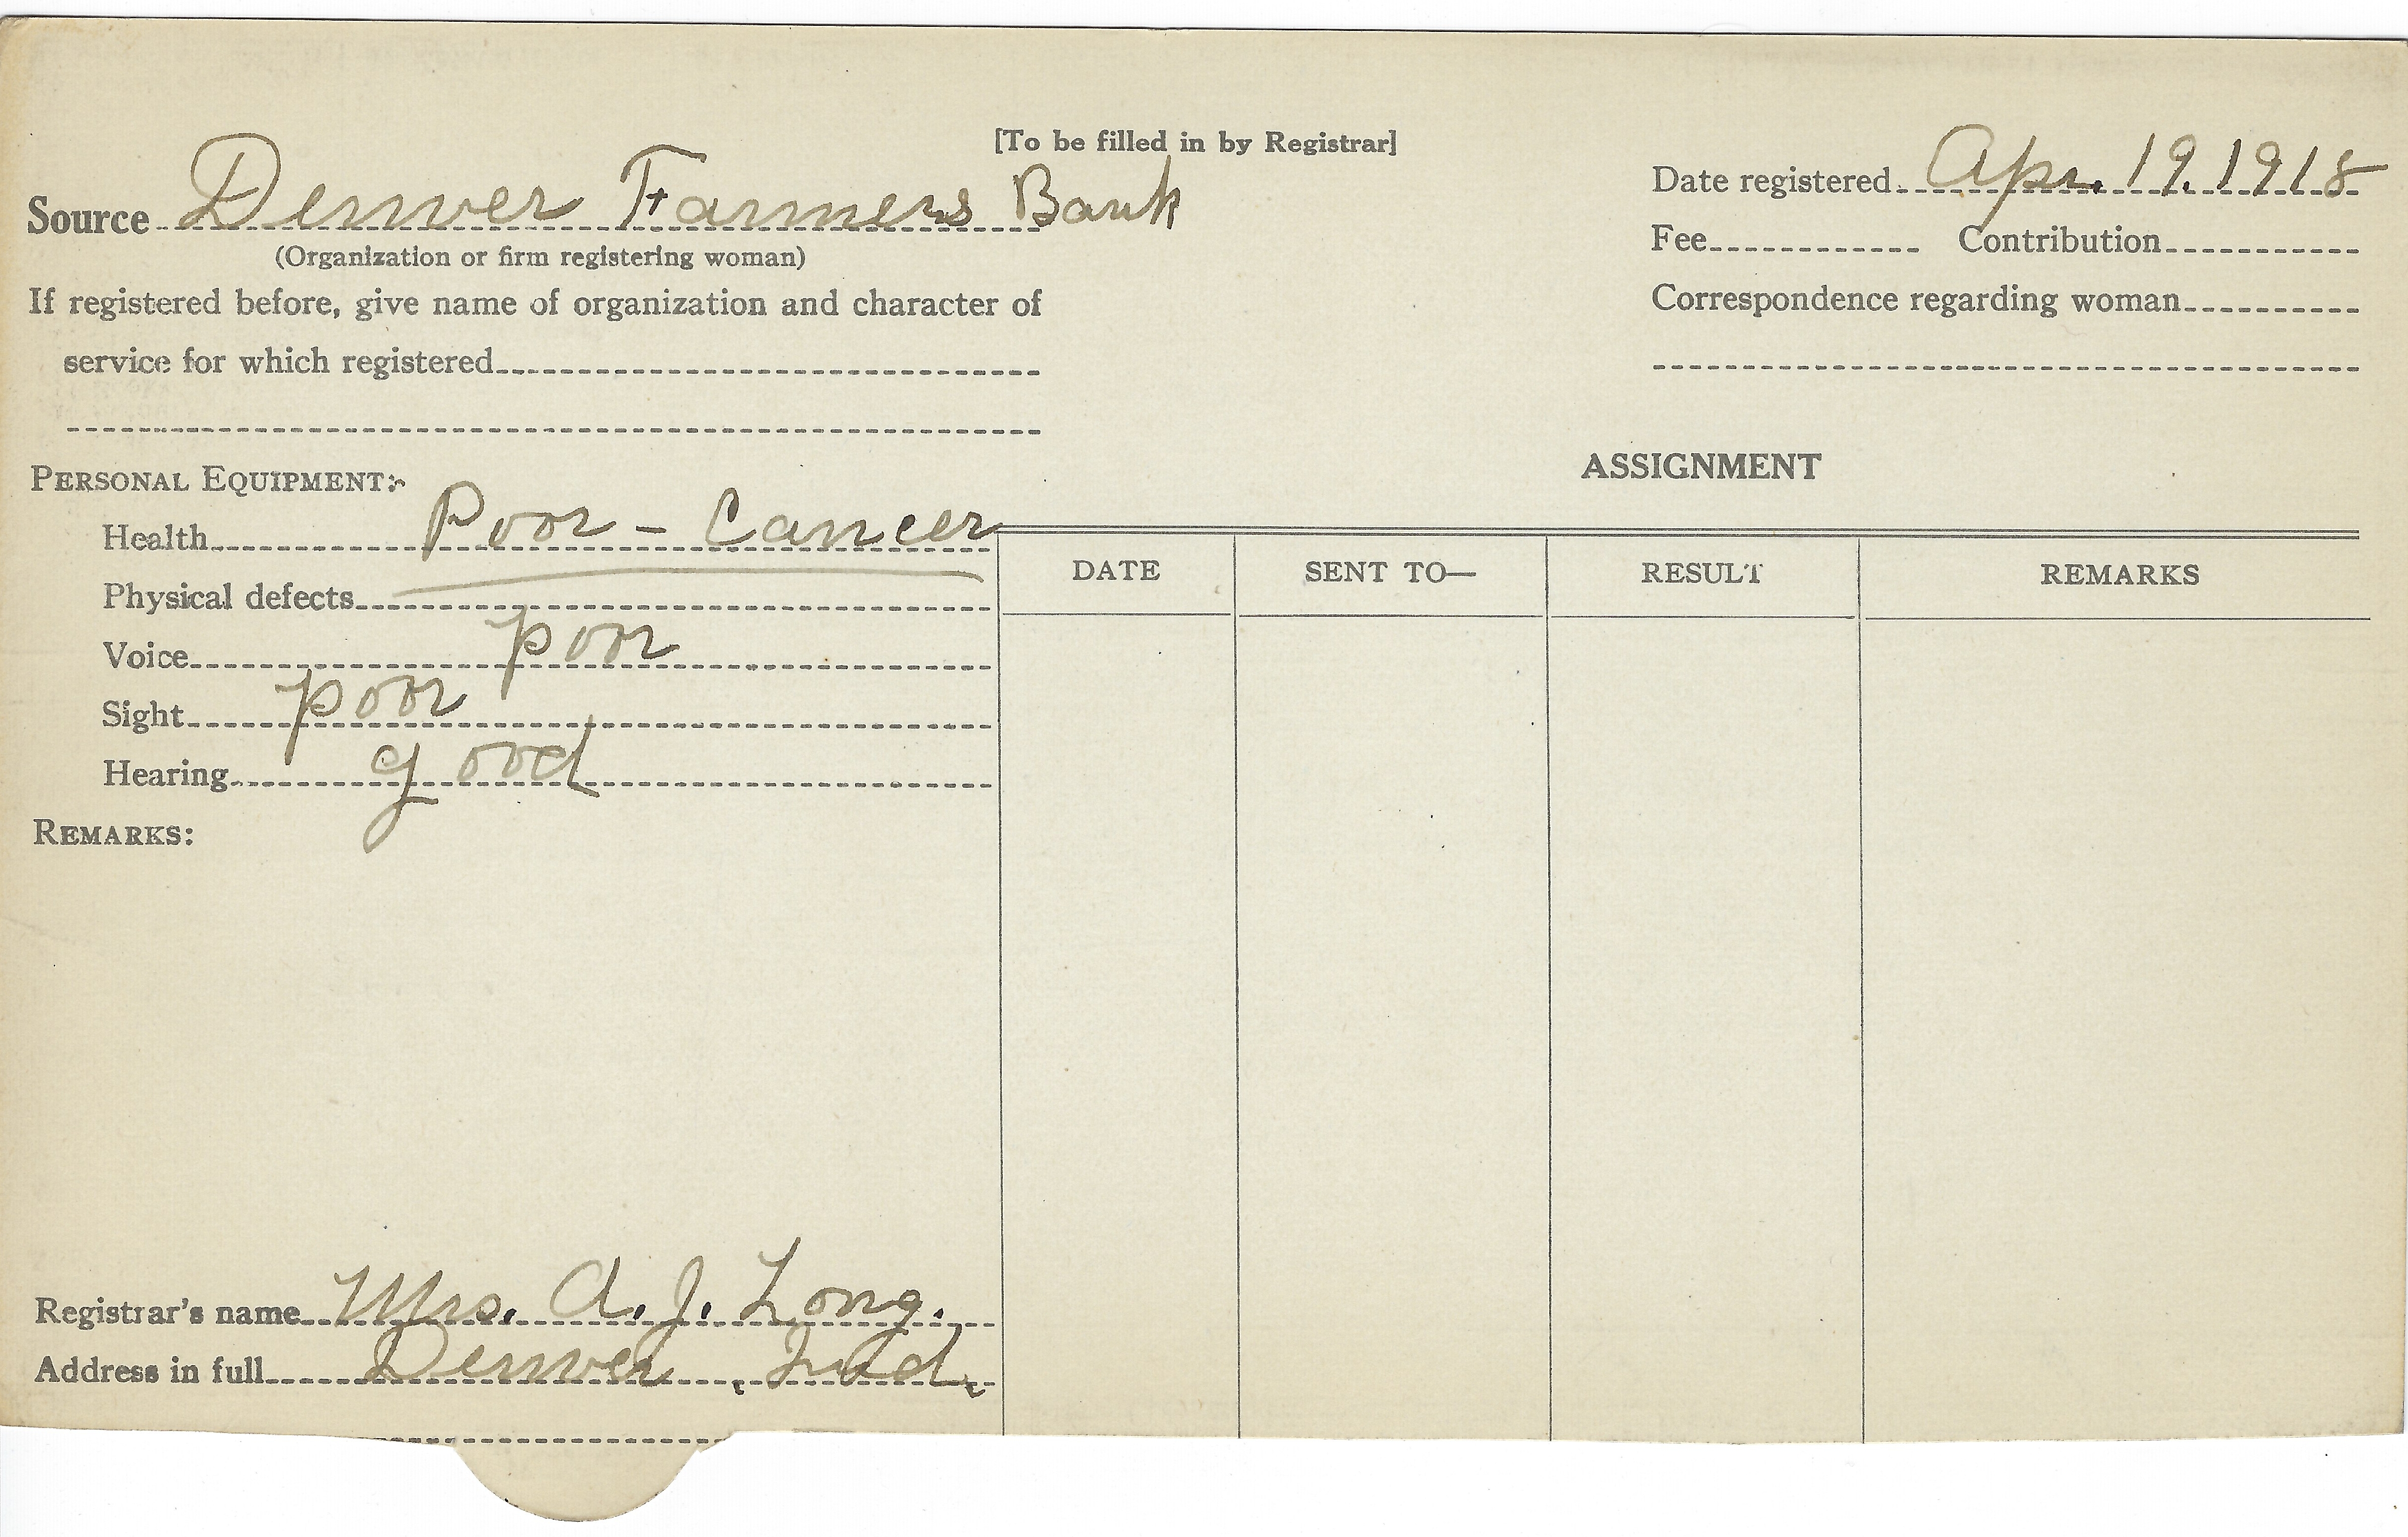 [To be filled in by Registrar]
Source Denver Farmers Bank
(Organization or firm registering woman)
If registered before, give name of organization and character of
service for which registered
Date registered Apr. 19. 1918
Fee Contribution
Correspondence regarding woman
PERSONAL EQUIPMENT:
Health Poor - Cancer
Physical defects
Voice poor
Sight poor
Hearing good
REMARKS:
ASSIGNMENT
DATE SENT TO— RESULT REMARKS
Registrar's name Mrs. A. J. Long.
Address in full Denver, Ind.